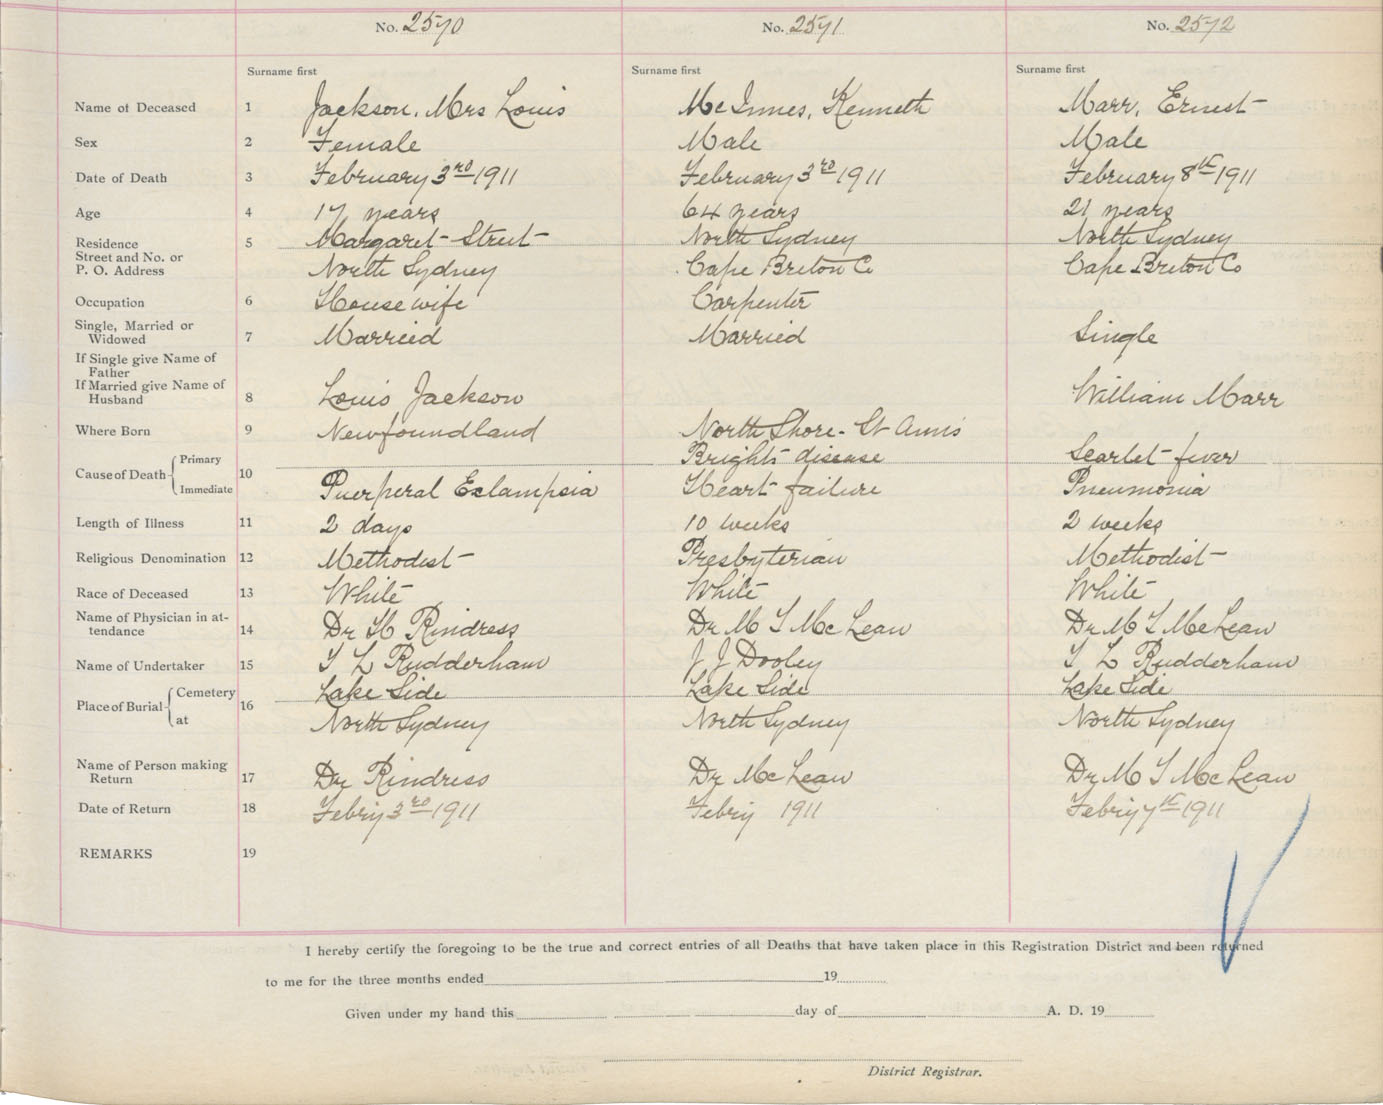 No. 2570 No. 2571 No. 2572
Surname first Surname first Surname first
Name of Deceased 1 Jackson, Mrs Louis McInnes, Kenneth Marr, Ernest
Sex 2 Female Male Male
Date of Death 3 February 3rd 1911 February 3rd 1911 February 8th 1911
Age 4 17 years 64 years 21 years
Residence 5 Margaret Street North Sydney North Sydney
Street and No. or
P. O. Address North Sydney Cape Breton Co Cape Breton Co
Occupation 6 House wife Carpenter
Single, Married or
Widowed 7 Married Married Single
If Single give Name of
Father
If Married give Name of
Husband 8 Louis Jackson William Marr
Where Born 9 Newfoundland North Shore - St Anns
Cause of Death Primary Brights disease Scarlet fever
10 Immediate Puerperal Eclampsia Heart failure Pneumonia
Length of Illness 11 2 days 10 weeks 2 weeks
Religious Denomination 12 Methodist Presbyterian Methodist
Race of Deceased 13 White White White
Name of Physician in at-
tendance 14 Dr H Rindress Dr M T McLean Dr M T McLean
Name of Undertaker 15 T L Rudderham J J Dooley T L Rudderham
Place of Burial Cemetery Lake Side Lake Side Lake Side
16 at North Sydney North Sydney North Sydney
Name of Person making
Return 17 Dr Rindress Dr McLean Dr M T McLean
Date of Return 18 Febry 3rd 1911 Febry 1911 Febry 7th 1911
REMARKS 19
I hereby certify the foregoing to be the true and correct entries of all Deaths that have taken place in this Registration District and been returned
to me for the three months ended 19
Given under my hand this day of A. D. 19
District Registrar.